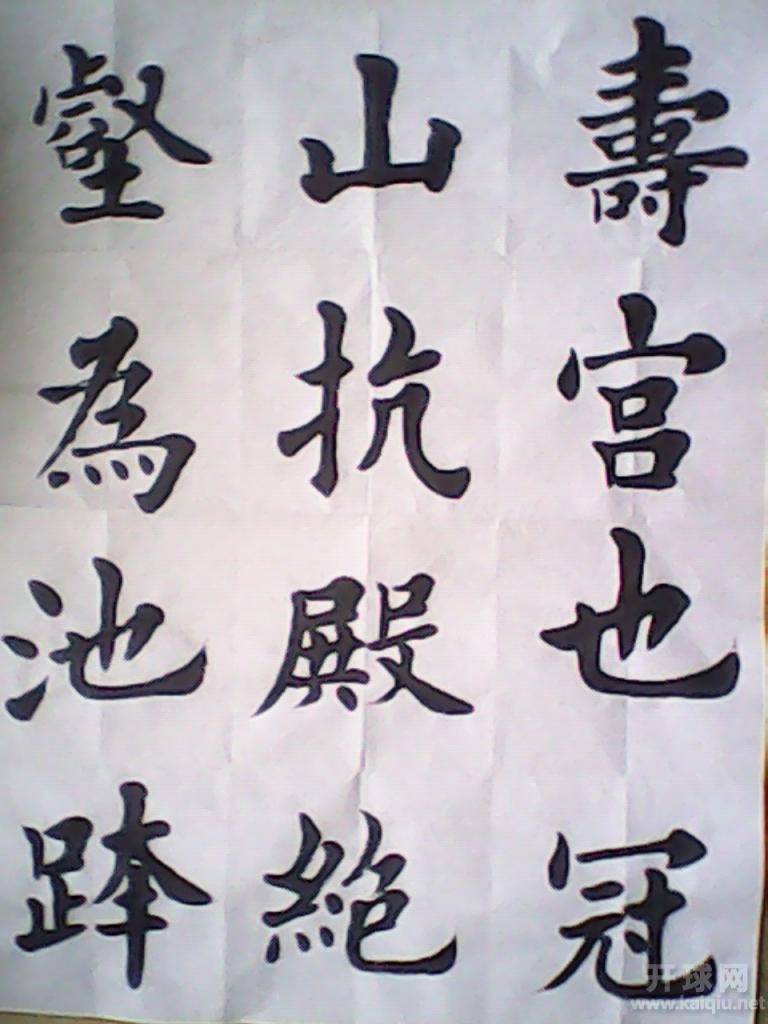 壽宮也冠
山抗殿絕
壑為池跨
开球网
www.kaiqiu.net